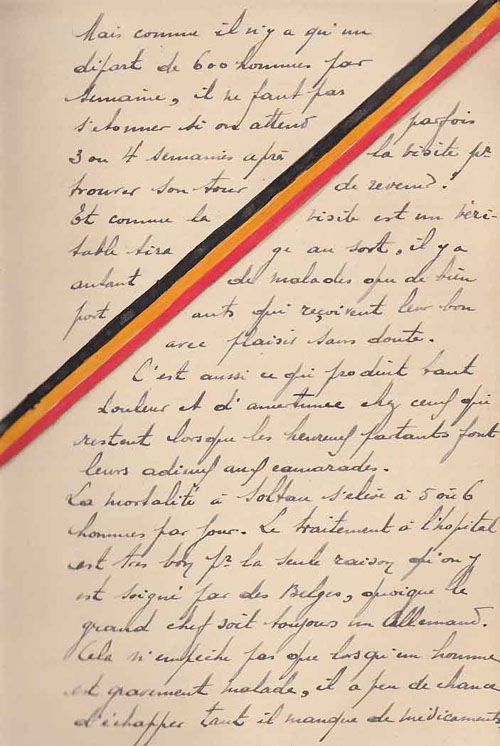 Mais comme il n'y a qu'un
départ de 600 hommes par
semaine, il ne faut pas
s'étonner si on attend parfois
3 ou 4 semaines après la visite pr
trouver son tour de revenir.
Et comme la visite est un véri-
table tira ge au sort, il y a
autant de malades que de bien
port ants qui reçoivent leur bon
avec plaisir sans doute.
C'est aussi ce qui produit tant
douleur et d'amertume chez ceux qui
restent lorsque les heureux partants font
leurs adieux aux camarades.
La mortalité à Soltau s'élève à 5 où 6
hommes par jour. Le traitement à l'hôpital
est très bon pr la seule raison qu'on y
est soigné par des Belges, quoique le
grand chef soit toujours un Allemand.
Cela n'empêche pas que lorsqu'un homme
est gravement malade, il a peu de chance
d'échapper tant il manque de médicaments